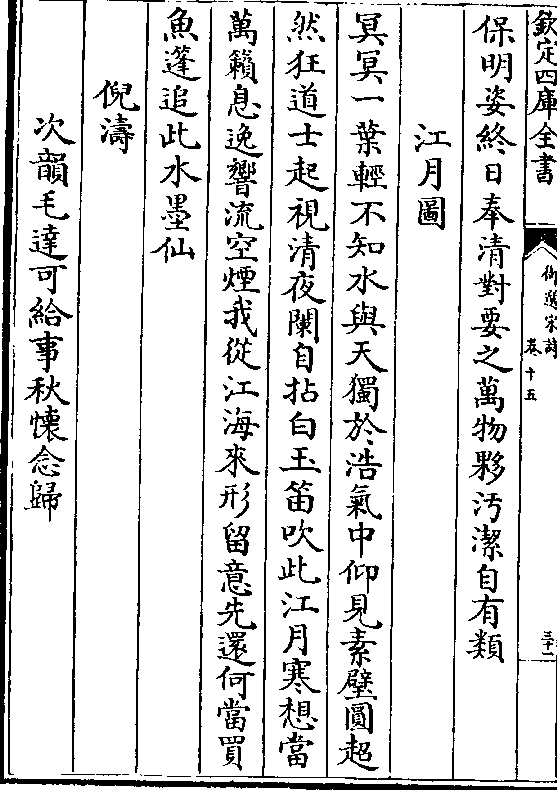 欽定四庫全書
御選宋詩
卷十五
三十二
保明姿終日奉清對要之萬物夥汚潔自有類
江月圖
冥冥一葉輕不知水與天獨於浩氣中仰見素璧圓超
然狂道士起視清夜闌自拈白玉笛吹此江月寒想當
萬籟息逸響流空煙我從江海來形留意先還何當買
魚蓬追此水墨仙
倪濤
次韻毛達可給事秋懷念歸